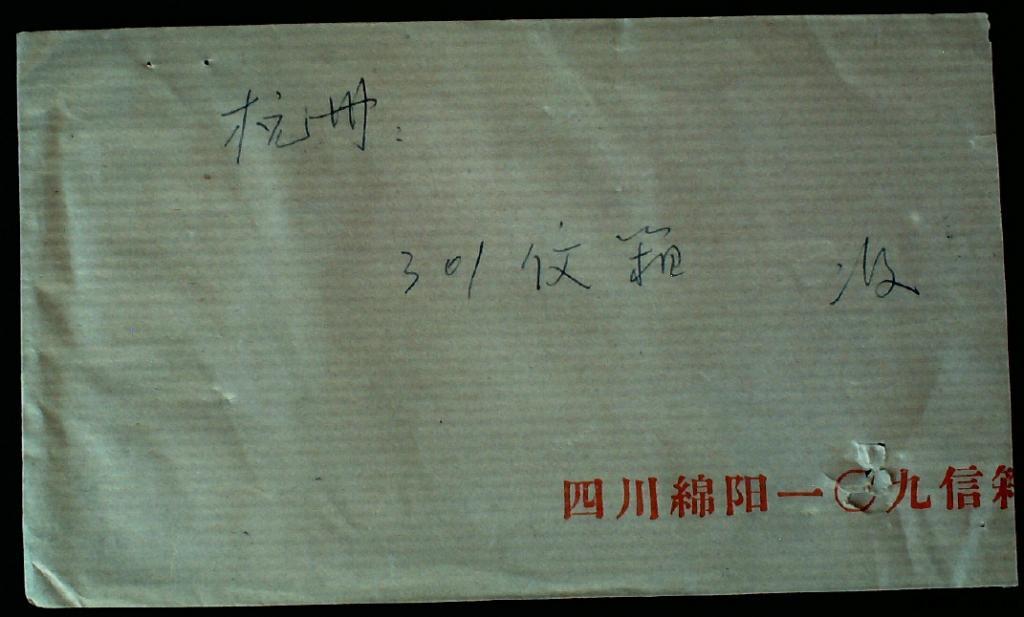 杭州:
301信箱 收
四川綿阳一〇九信箱